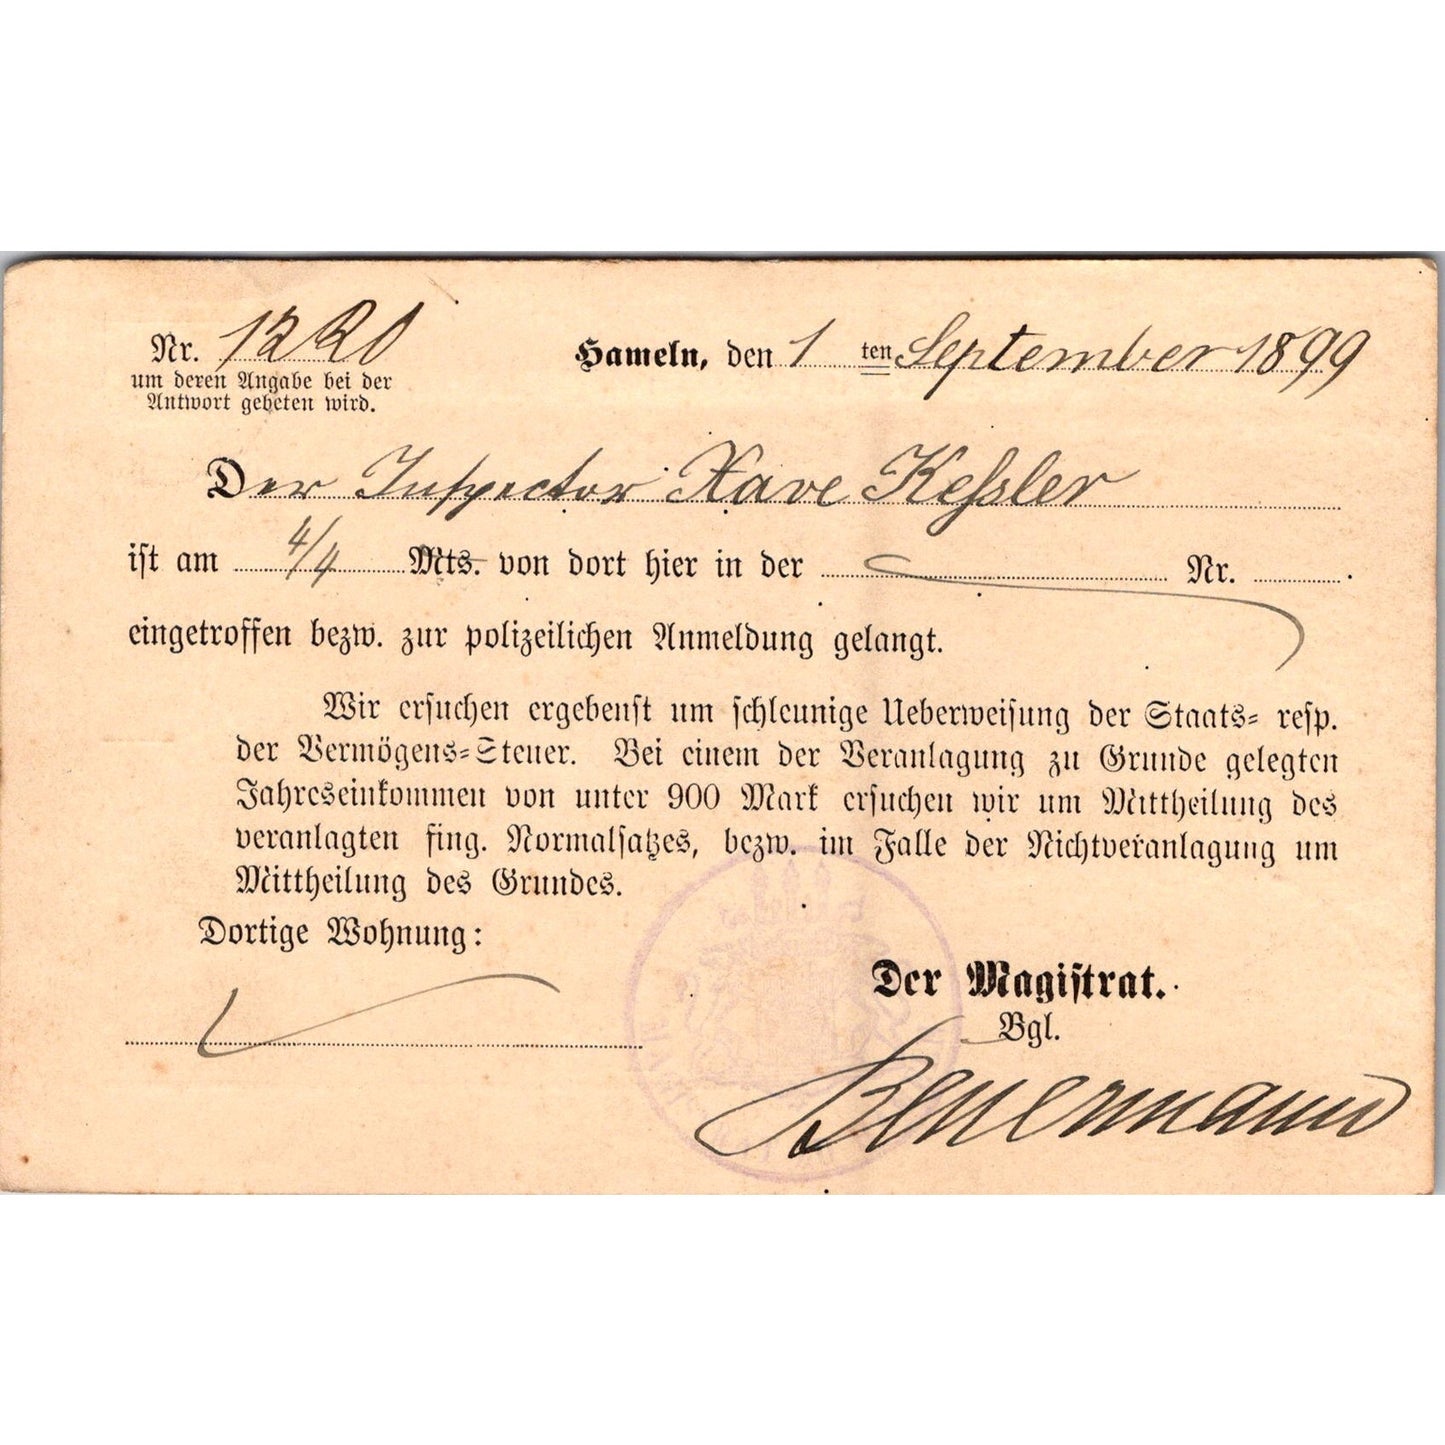 Nr. 1220
um deren Angabe bei der
Antwort gebeten wird.
Hameln, den 1 ten September 1899
Der Inspector Xave Kessler
ist am 4/4 Mts. von dort hier in der Nr. .
eingetroffen bezw. zur polizeilichen Anmeldung gelangt.
Wir ersuchen ergebenst um schleunige Ueberweisung der Staats- resp.
der Vermögens-Steuer. Bei einem der Veranlagung zu Grunde gelegten
Jahreseinkommen von unter 900 Mark ersuchen wir um Mittheilung des
veranlagten fing. Normalsatzes, bezw. im Falle der Nichtveranlagung um
Mittheilung des Grundes.
Dortige Wohnung:
Der Magistrat.
Bgl.